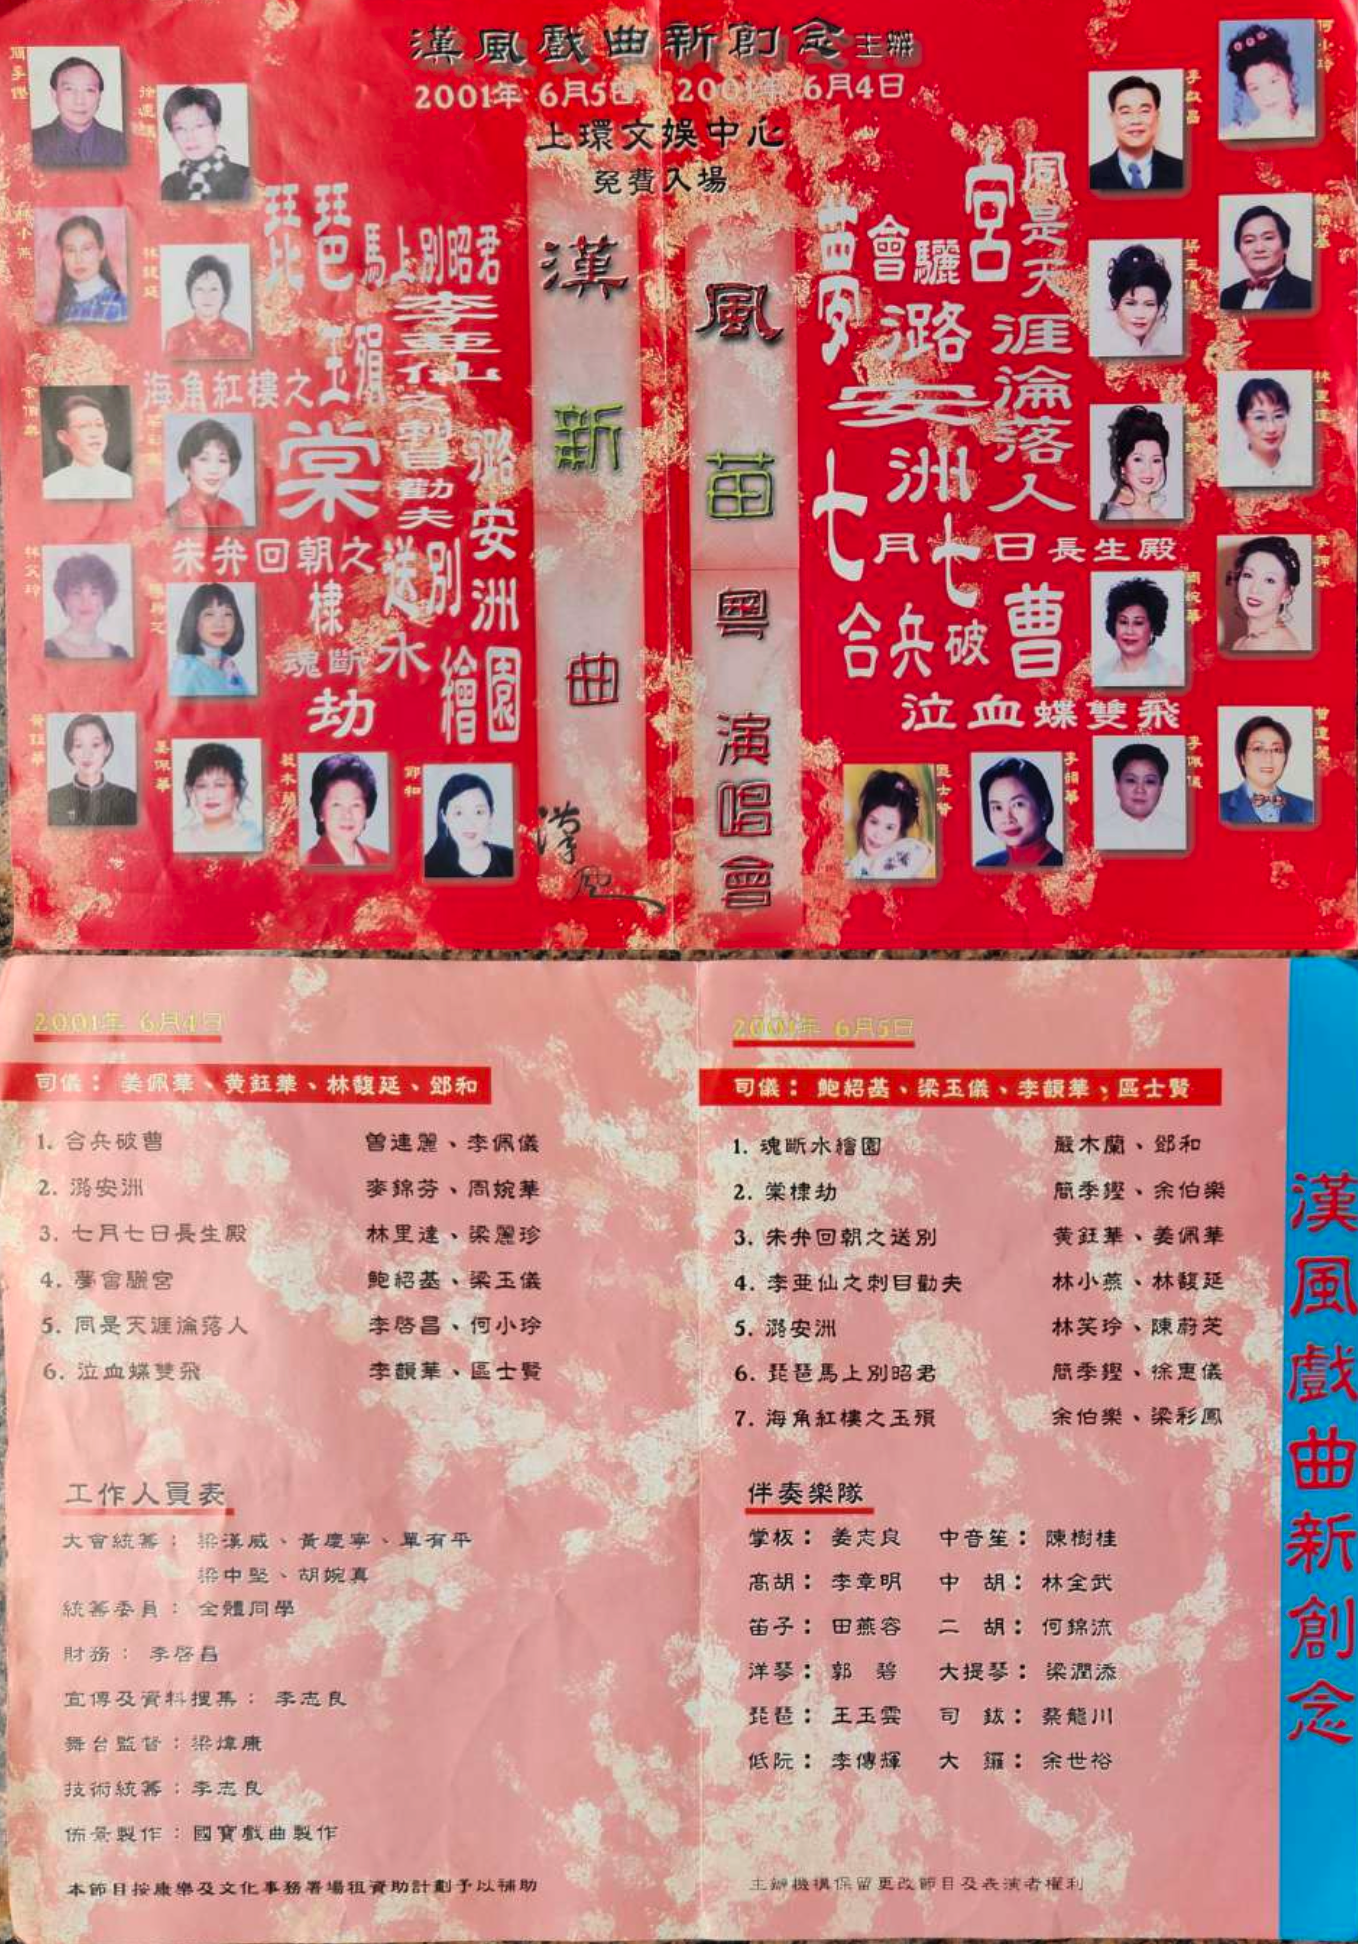 漢風戲曲新創念主辦
2001年 6月5日 2001年 6月4日
上環文娛中心
免費入場
漢風
新苗
曲粵
演唱會
漢風
琵琶馬上別昭君
李亞仙之刺目勸夫
海角紅樓之玉殞
棠棣劫
朱弁回朝之送別
潞安洲
魂斷水繪園
夢會驪宮
同是天涯淪落人
潞安洲
七月七日長生殿
合兵破曹
泣血蝶雙飛
簡季鏗
徐惠儀
林小燕
林馥延
余伯樂
林笑玲
陳蔚芝
黃鈺華
姜佩華
嚴木蘭
鄧和
何小玲
李啟昌
鮑紹基
梁玉儀
林里達
周婉華
曾連麗
李佩儀
李韻華
區士賢
2001年 6月4日
司儀：姜佩華、黃鈺華、林馥延、鄧和
1. 合兵破曹 曾連麗、李佩儀
2. 潞安洲 麥錦芬、周婉華
3. 七月七日長生殿 林里達、梁麗珍
4. 夢會驪宮 鮑紹基、梁玉儀
5. 同是天涯淪落人 李啓昌、何小玲
6. 泣血蝶雙飛 李韻華、區士賢
工作人員表
大會統籌：梁漢威、黃慶寧、單有平
梁中堅、胡婉真
統籌委員：全體同學
財務：李啓昌
宣傳及資料搜集：李志良
舞台監督：梁煒康
技術統籌：李志良
佈景製作：國寶戲曲製作
本節目按康樂及文化事務署場租資助計劃予以補助
2001年 6月5日
司儀：鮑紹基、梁玉儀、李韻華、區士賢
1. 魂斷水繪園 嚴木蘭、鄧和
2. 棠棣劫 簡季鏗、余伯樂
3. 朱弁回朝之送別 黃鈺華、姜佩華
4. 李亞仙之刺目勸夫 林小燕、林馥延
5. 潞安洲 林笑玲、陳蔚芝
6. 琵琶馬上別昭君 簡季鏗、徐惠儀
7. 海角紅樓之玉殞 余伯樂、梁彩鳳
伴奏樂隊
掌板：姜志良 中音笙：陳樹桂
高胡：李章明 中 胡：林全武
笛子：田燕容 二 胡：何錦流
洋琴：郭 碧 大提琴：梁潤添
琵琶：王玉雲 司 鈸：蔡龍川
低阮：李傳輝 大 鑼：余世裕
主辦機構保留更改節目及表演者權利
漢風戲曲新創念